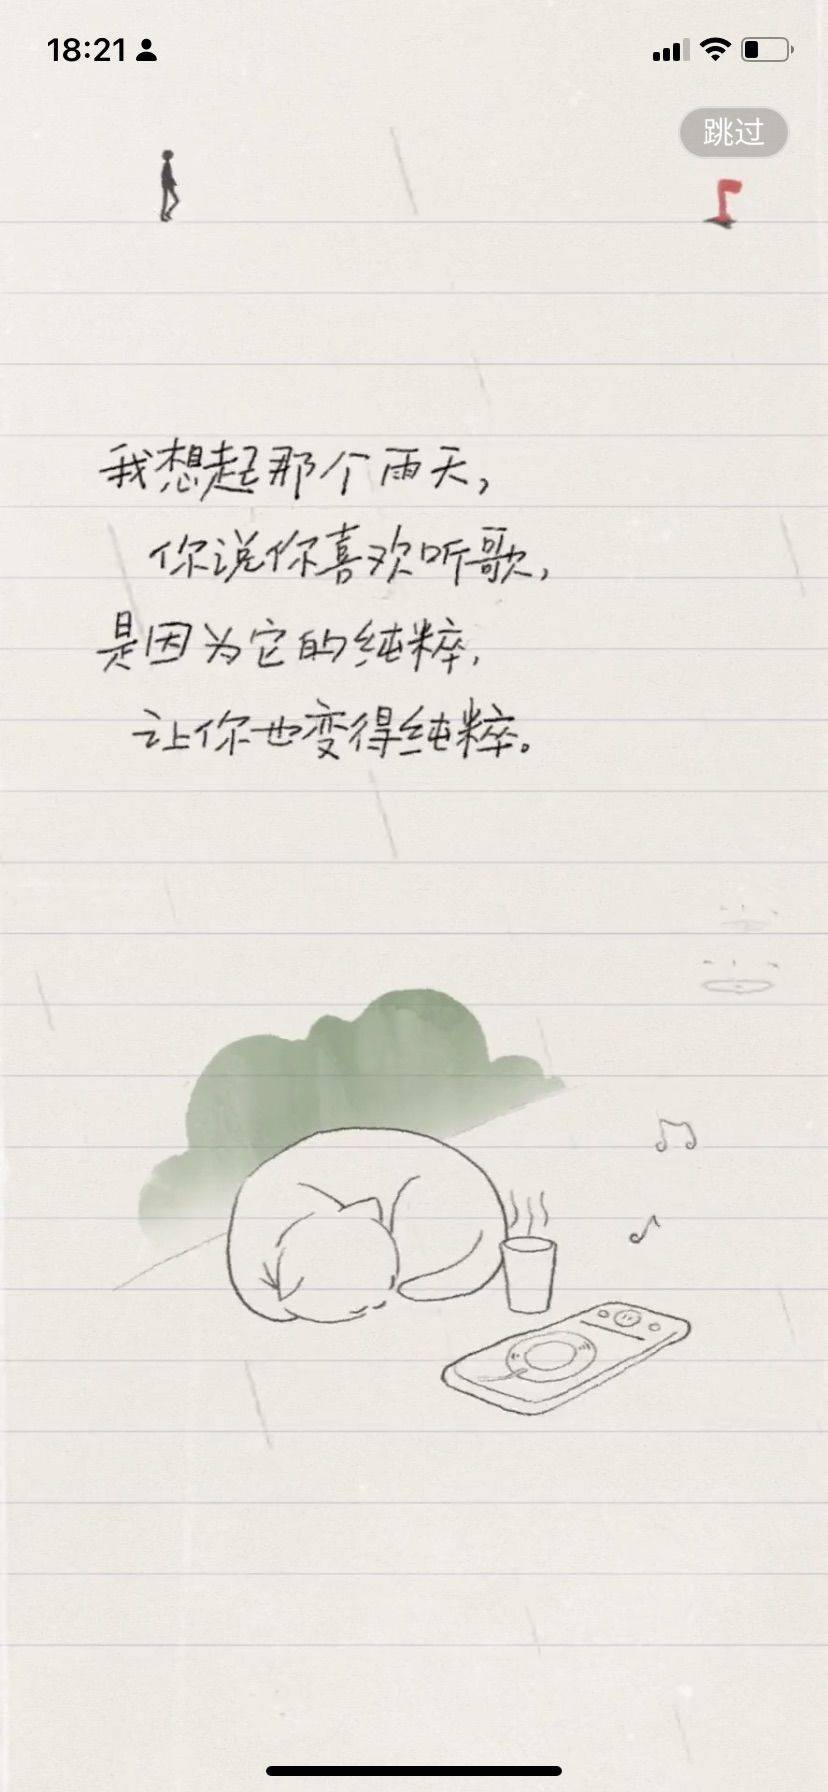 18:21
跳过
我想起那个雨天，
你说你喜欢听歌，
是因为它的纯粹，
让你也变得纯粹。